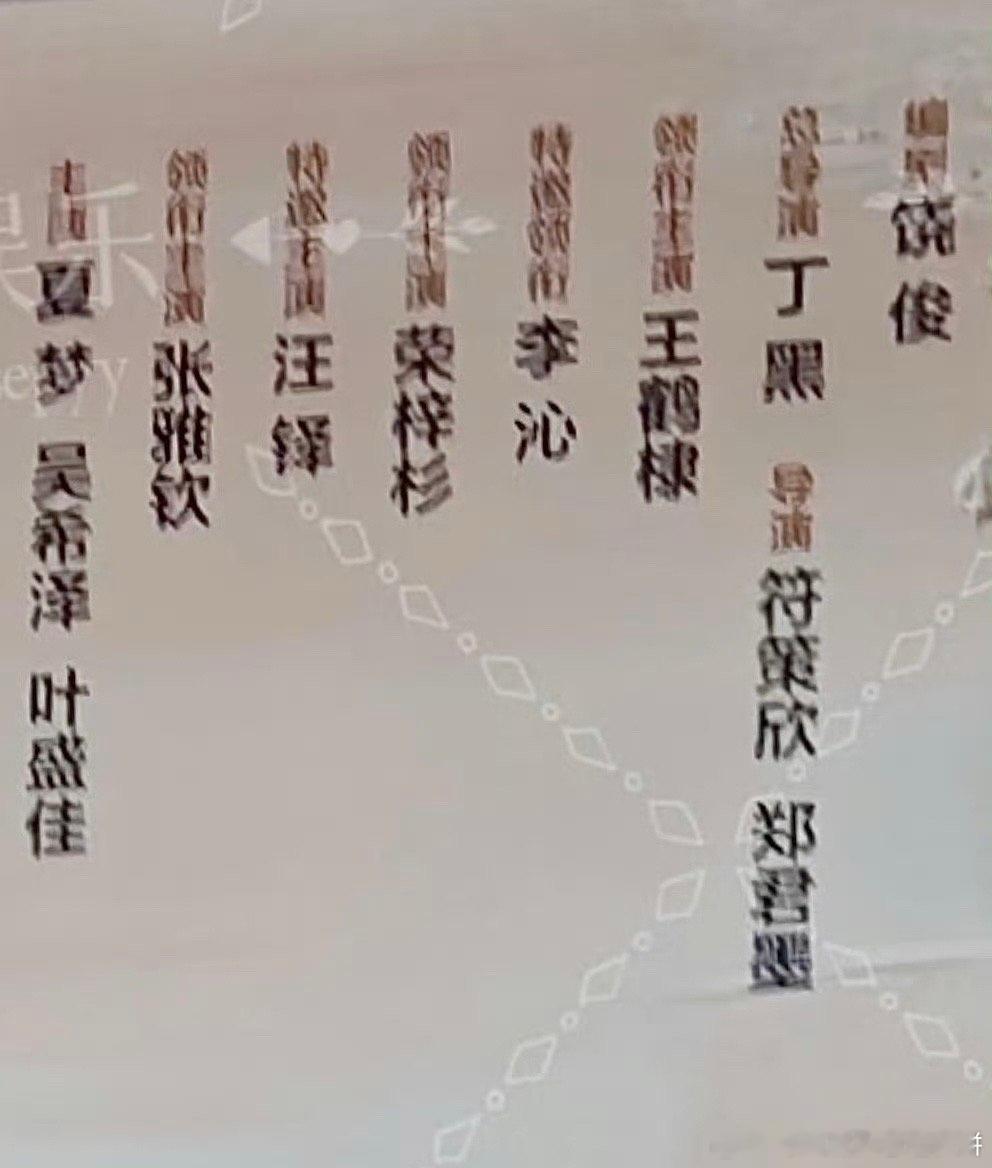 编剧 饶俊
总导演 丁黑 导演 符策欣
领衔主演 王鹤棣
特邀领衔 李沁
领衔主演 荣梓杉
特邀主演 汪铎
领衔主演 张雅钦
主演 夏梦 吴希泽 叶盛佳
娱乐